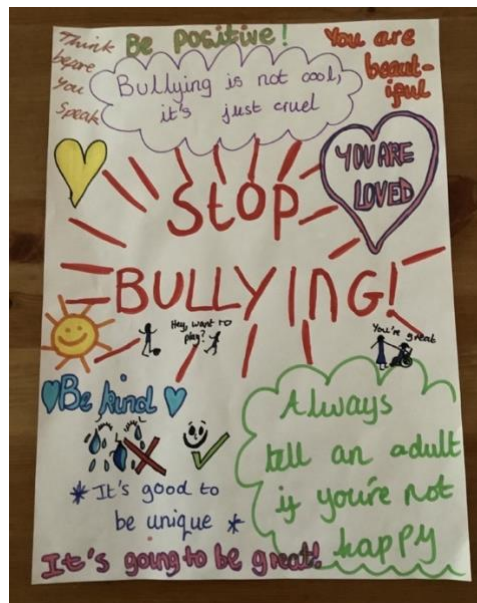 Think
before
You
Speak
Be positive!
You are
beaut-
iful
Bullying is not cool,
it's just cruel
YOU ARE
LOVED
StOP
BULLYING!
Hey, want to
play?
You're great
Be kind
Always
tell an adult
if you're not
happy
*It's good to
be unique *
It's going to be great!